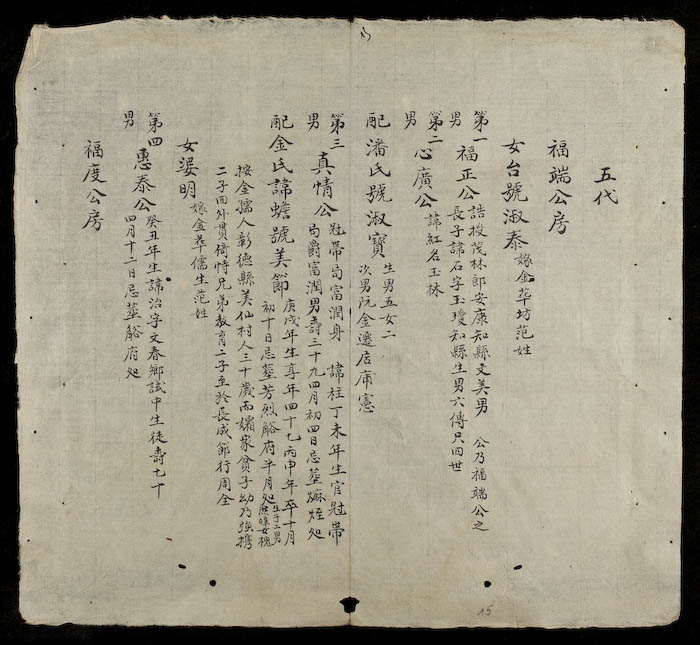 五代
福端公房
女台號淑泰嫁金葬坊范姓
第一
男
福正公
誥授茂林郎安康知縣文美男 公乃福端公之
長子諱石字玉瓊知縣生男六傳只四世
第二
男
心廣公諱紅名玉林
配潘氏號淑寶
生男五女二
次男阮金邊店庯憲
第三
男
真情公
冠帶旬富潤身 諱柱丁未年生官冠帶
旬爵富潤男壽三十九四月初四日忌墓處
配金氏諱蟾號美節
庚戌年生享年四十七丙申年卒十月
初十日忌墓芳烈府半月处生子二男
按金孺人彰德縣美仙村人三十歲而孀家貧子幼乃強携
二子回外貫倚恃兄弟教育二子至於長成節行周全
女婆明嫁金葬儒生范姓
第四
男
惠泰公
癸丑年生諱治字文春鄉試中生徒壽七十
四月十二日忌墓府处
福度公房
15